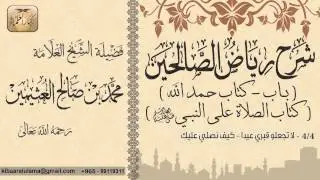 شرح رياض الصالحين
( باب - كتاب حمد الله )
( كتاب الصلاة على النبي ﷺ )
4/4 - لا تجعلو قبري عيدا - كيف نصلي عليك
فضيلة الشيخ العلامة
محمد بن صالح العثيمين
رحمه الله تعالى
kibaarulama@gmail.com